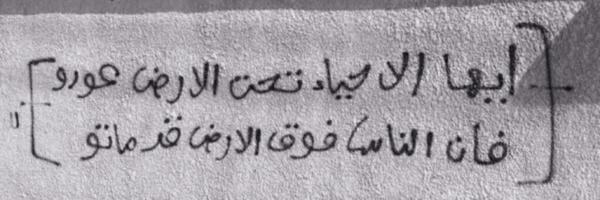 [ايها الاحياء تحت الارض عودو
فان الناس فوق الارض قد ماتو]